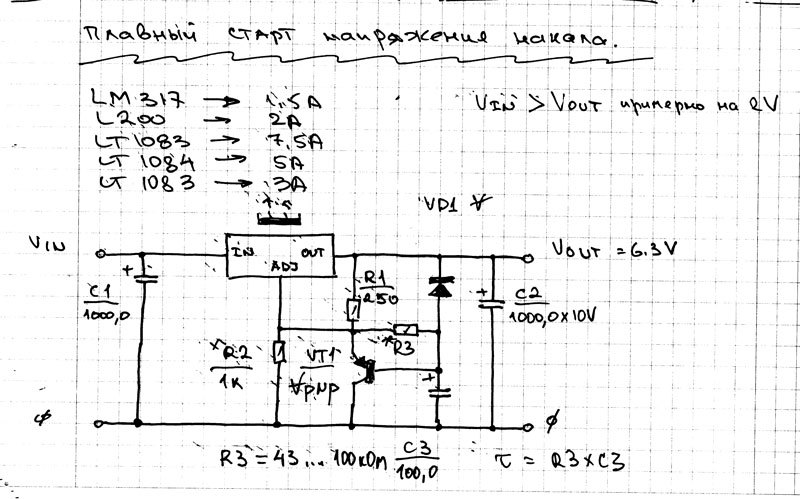 плавный старт напряжения накала.
LM317 → 1,5A
L200 → 2A
LT1083 → 7,5A
LT1084 → 5A
LT1083 → 3A
VIN > VOUT примерно на 2V
VD1 ∀
VIN
IN OUT
ADJ
VOUT = 6.3V
+
C1
1000,0
R1
250
+
C2
1000,0x10V
*R2
1K
VT1
∀pnp
*R3
+
φ
φ
R3 = 43...100кОм
C3
100,0
τ = R3xC3